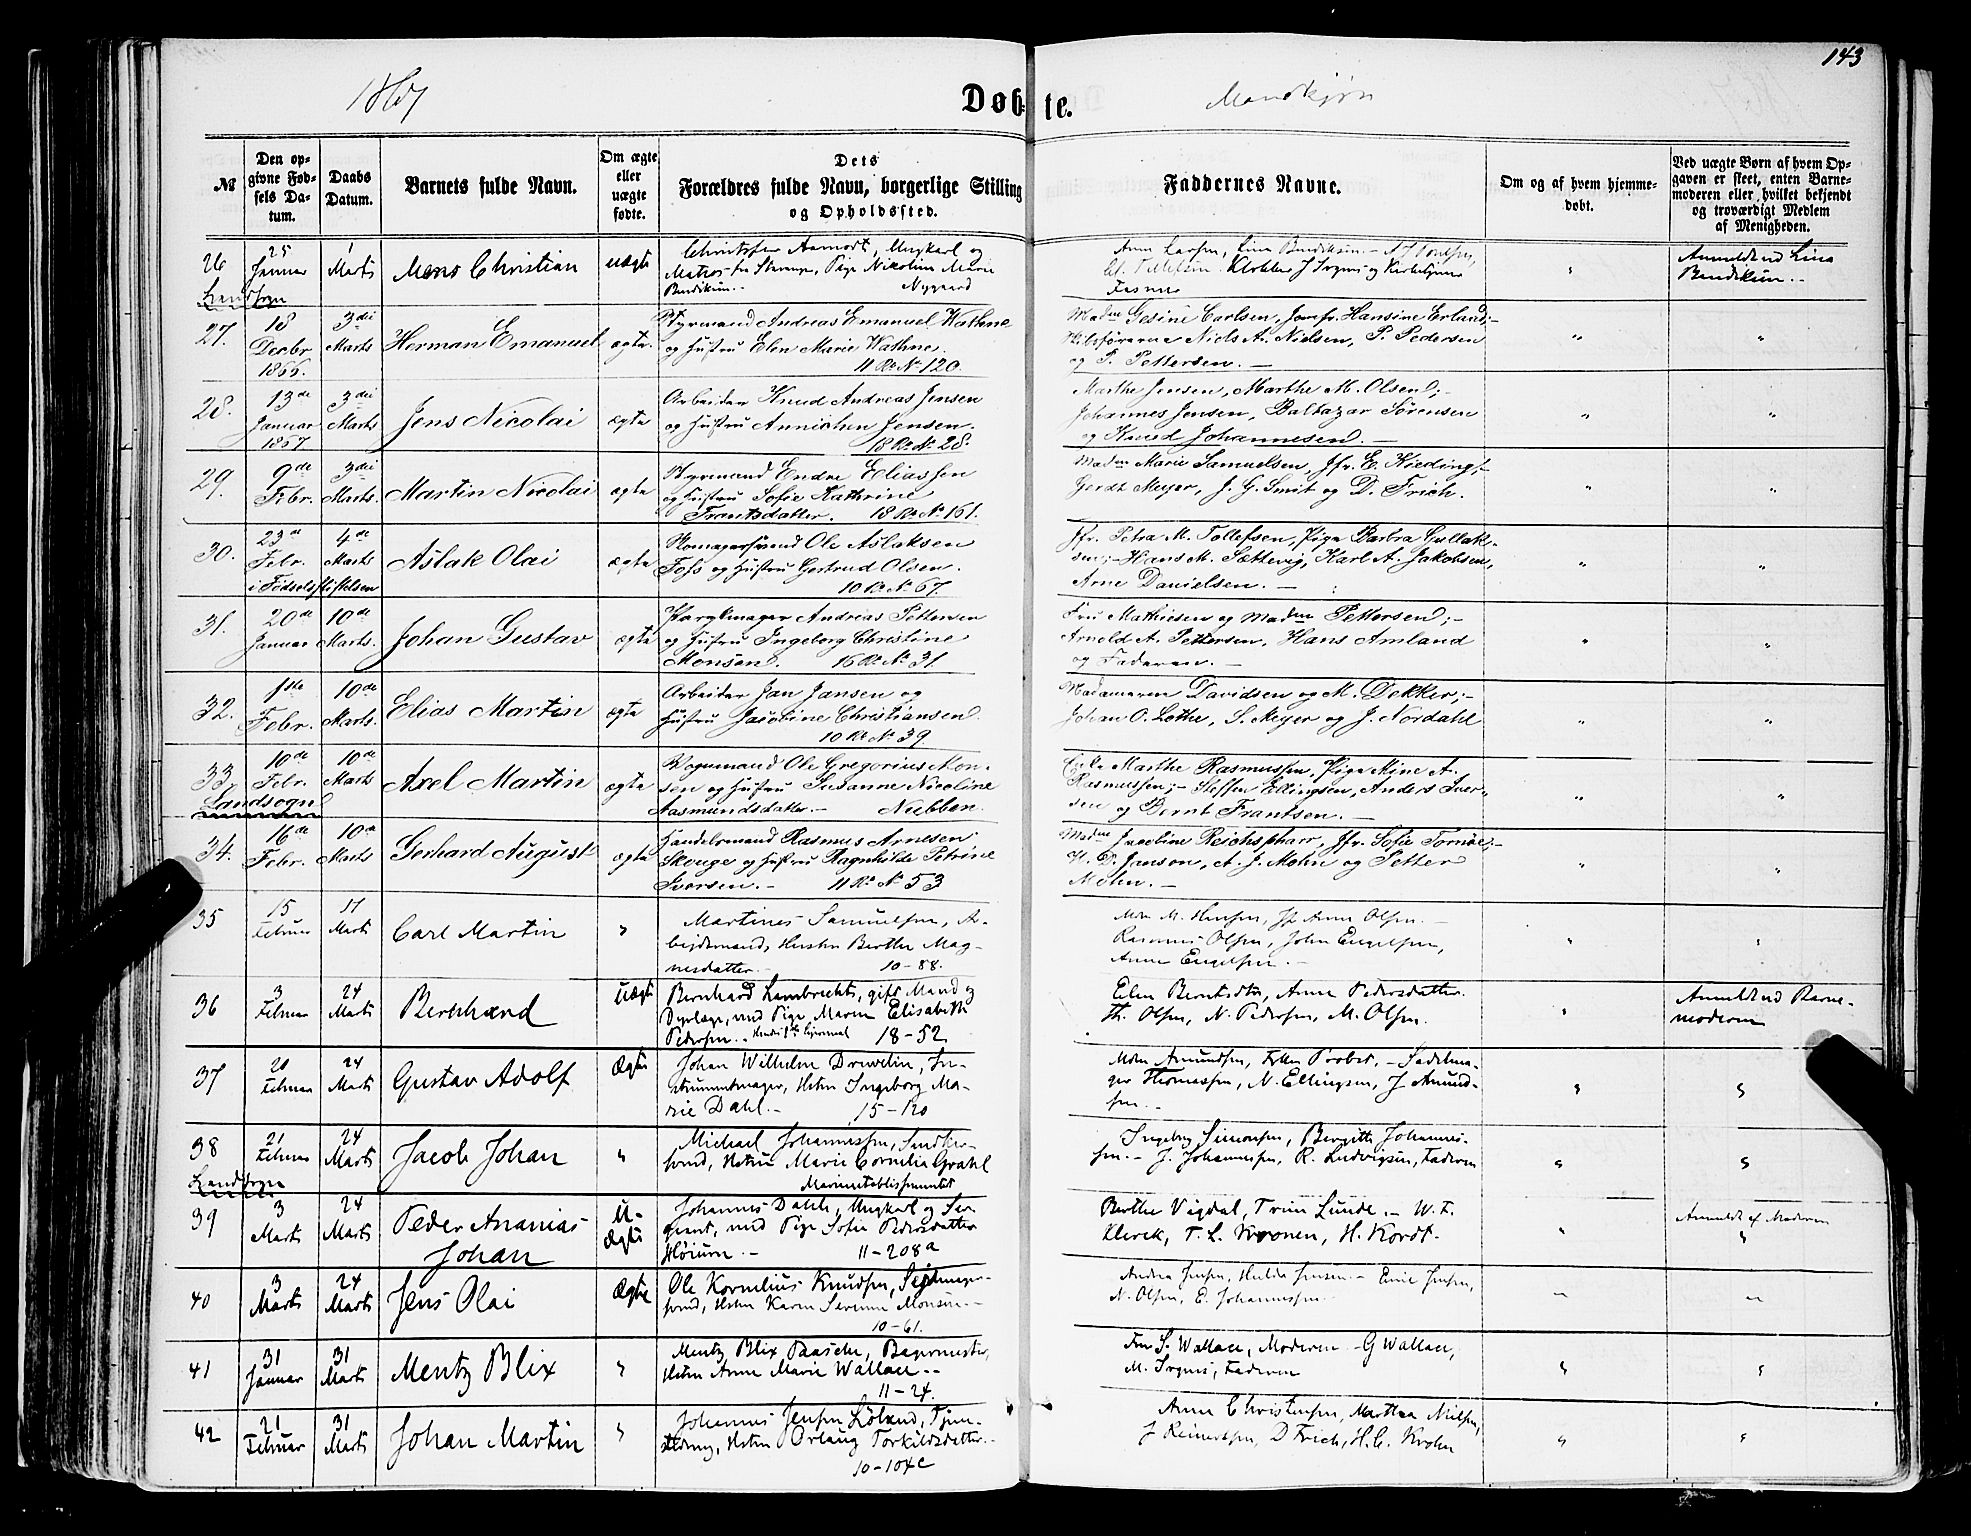 143
1867
Døbte.
Mandkjøn
№
Den opgivne Fødsels Datum.
Daabs Datum.
Barnets fulde Navn.
Om ægte eller uægte fødte.
Dets Forældres fulde Navn, borgerlige Stilling og Opholdssted.
Faddernes Navne.
Om og af hvem hjemmedøbt.
Ved uægte Børn af hvem Opgaven er skeet, enten Barnemoderen eller hvilket bekjendt og troværdigt Medlem af Menigheden.
26
25 Januar
1 Marts
Mons Christian
uægte
Christopher Aamodt, Ungkarl og
Matros, Pige Nicoline Marie
Nygaard
Landsogn
27.
18 Decbr 1866.
3die Marts
Herman Emanuel
ægte.
Styrmand Andreas Emanuel Wathne
og Hustru Elen Marie Wathne.
11 R. № 120.
Madm Gesine Carlsen, Jomfr. Hansine Erland;-
Niels A. Nielsen, P. Pedersen
og P. Pettersen. –
"
"
28.
13de Januar 1867
3die Marts
Jens Nicolai
ægte
Arbeider Knud Andreas Jensen
og Hustru Annichen Jensen.
18 R. № 28.
Marthe Jensen, Marthe M. Olsen;-
Johannes Jensen, Baltazar Sørensen
og Knud Johannesen. –
"
"
29.
9de Febr.
3die Marts.
Martin Nicolai
ægte
Styrmand Endre Eliassen
og Hustru Sofie Kathrine
Frantsdatter. 18 R. № 161.
Madm Marie Samuelsen, Jfr. E. Kieding;-
Gerdt Meyer, J. G. Smit og D. Frich.
"
"
30.
23de Febr.
4de Marts
i Fødselsstiftelsen
Aslak Olai
ægte
Skomagersvend Ole Aslaksen
Foss og Hustru Gertrud Olsen.
10 R. № 67.
Jfr. Petra M. Tollefsen, Pige Barbra Gullak-
sen;- Hans M. Sættevig, Karl A. Jakobsen,
Arne Danielsen. –
"
"
31.
20de Januar
10de Marts.
Johan Gustav
ægte
Andreas Pettersen
og Hustru Ingeborg Christine
Monsen. 16 R. № 31.
Fru Mathiesen og Madm Pettersen;-
Arnold A. Pettersen, Hans Amland
og Faderen. –
"
"
32.
1ste Febr.
10de Marts.
Elias Martin
ægte
Arbeider Jan Jansen og
Hustru Jacobine Christiansen.
10 R. № 39.
Madamerne Davidsen og M. Dekker;-
Johan O. Lothe, S. Meyer og J. Nordahl
"
"
33.
10de Febr.
10de Marts
Axel Martin
ægte
Vognmand Ole Gregorius Mon-
sen og Hustru Susanne Nicoline
Aasmundsdatter. – Nubben.
Landsogn
Enke Marthe Rasmussen, Pige Mine A.
Rasmussen;- Steffen Ellingsen, Anders Iver-
sen og Bernt Frantsen. –
"
"
34.
16de Febr.
10de Marts
Gerhard August
ægte
Handelsmand Rasmus Arnesen
Skouge og Hustru Ragnhilde Petrine
Iversen. – 11 R. № 53
Madm Jacobine Reichspharr, Jfr. Sofie Tornøe;-
H. D. Janson, A. J. Mohn og Petter
Mohn. –
"
"
35
15 Februar
17 Marts
Carl Martin
"
Martines Samuelsen, Ar-
bejdsmand, Hustru Berthe Mag-
nesdatter. – 10-88.
Mdm M. Hansen, Jf Anne Olsen.
Rasmus Olsen, John Engelsen,
Arne Engelsen. –
"
"
36
3 Februar
24 Marts
Bernhard
Uægte
Bernhard Lambrechts, gift Mand og
Dyrlæge, med Pige Maren Elisabeth
Pedersen. 18-52
Elen Berntsdtr, Anne Pedersdatter.
Th. Olsen, N. Pedersen, M. Olsen.
"
Anmeldt ved Barne-
moderen
37
20 Februar
24 Marts
Gustav Adolf
Ægte
Johan Wilhelm Drewelin, In-
strumentmager, Hstru Ingeborg Ma-
rie Dahl. – 15-120
Mdm Amundsen, Frk Probst, – Sadelma-
ger Thomassen, N. Ellingsen, J Amund-
sen. –
"
"
38
21 Februar
24 Marts
Jacob Johan
"
Michael Johannessen,
svend, Hstru Marie Cornelia Grahl
Marineetablissementet
Landsogn
Ingeborg Simonsen, Bergitte Johannes-
sen. – J. Johannessen, R. Ludvigsen, Faderen
"
"
39
3 Marts
24 Marts
Peder Ananias
Johan
U-
Ægte
Johannes Dahle, Ungkarl og Ser-
gent, med Pige Sofie Pedersdatter
Høium. – 11-208a
Berthe Vigdal, Trine Lunde. – W. F.
Klerck, T. L. Kronen, H. Kordt.
"
Anmeldt af Moderen
"
40
3 Marts
24 Marts
Jens Olai
Ægte
Ole Kornelius Knudsen, Sejlmager-
svend, Hstru Karen Serine Monsen. –
10-61.
Andrea Jensen, Hulda Jensen. – Emil Jensen,
N. Olsen, E. Johannessen. –
"
"
41
31 Januar
31 Marts
Mentz Blix
"
Mentz Blix Paasche, Bagermester,
Hstru Anne Marie Wallace. –
11-24.
Fru S. Wallace, Moderen – G Wallace,
M. Irgens, Faderen
"
"
42
21 Februar
31 Marts
Johan Martin
"
Johannes Jensen Løland,
Hstru Orlaug Torkildsdatter. –
10-104c
Anne Christensen, Marthea Nielsen,
J Reinertsen, D Frich, H. C. Krohn
"
"